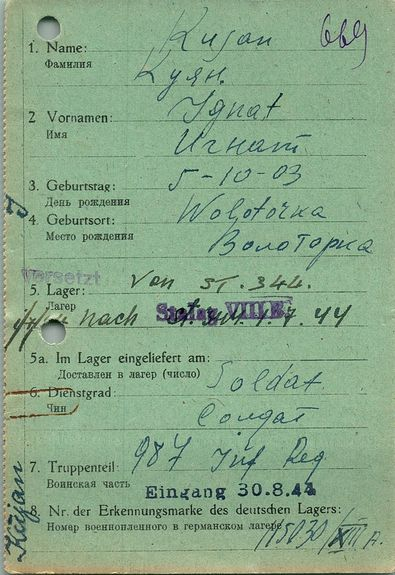 1. Name: Kujan 669
Фамилия Куян.
2 Vornamen: Ignat
Имя Игнат
3. Geburtstag: 5-10-03
День рождения
4. Geburtsort: Wolotorka
Место рождения Волоторка
Versetzt
5. Lager: von St. 344.
Лагер Stalag VIII E
nach 1.7.44
5a. Im Lager eingeliefert am:
Доставлен в лагер (число)
6. Dienstgrad: Soldat
Чин Солдат
7. Truppenteil: 987 Inf Reg
Воинская часть
Eingang 30.8.44
8. Nr. der Erkennungsmarke des deutschen Lagers:
Номер военнопленного в германском лагере
Kujan